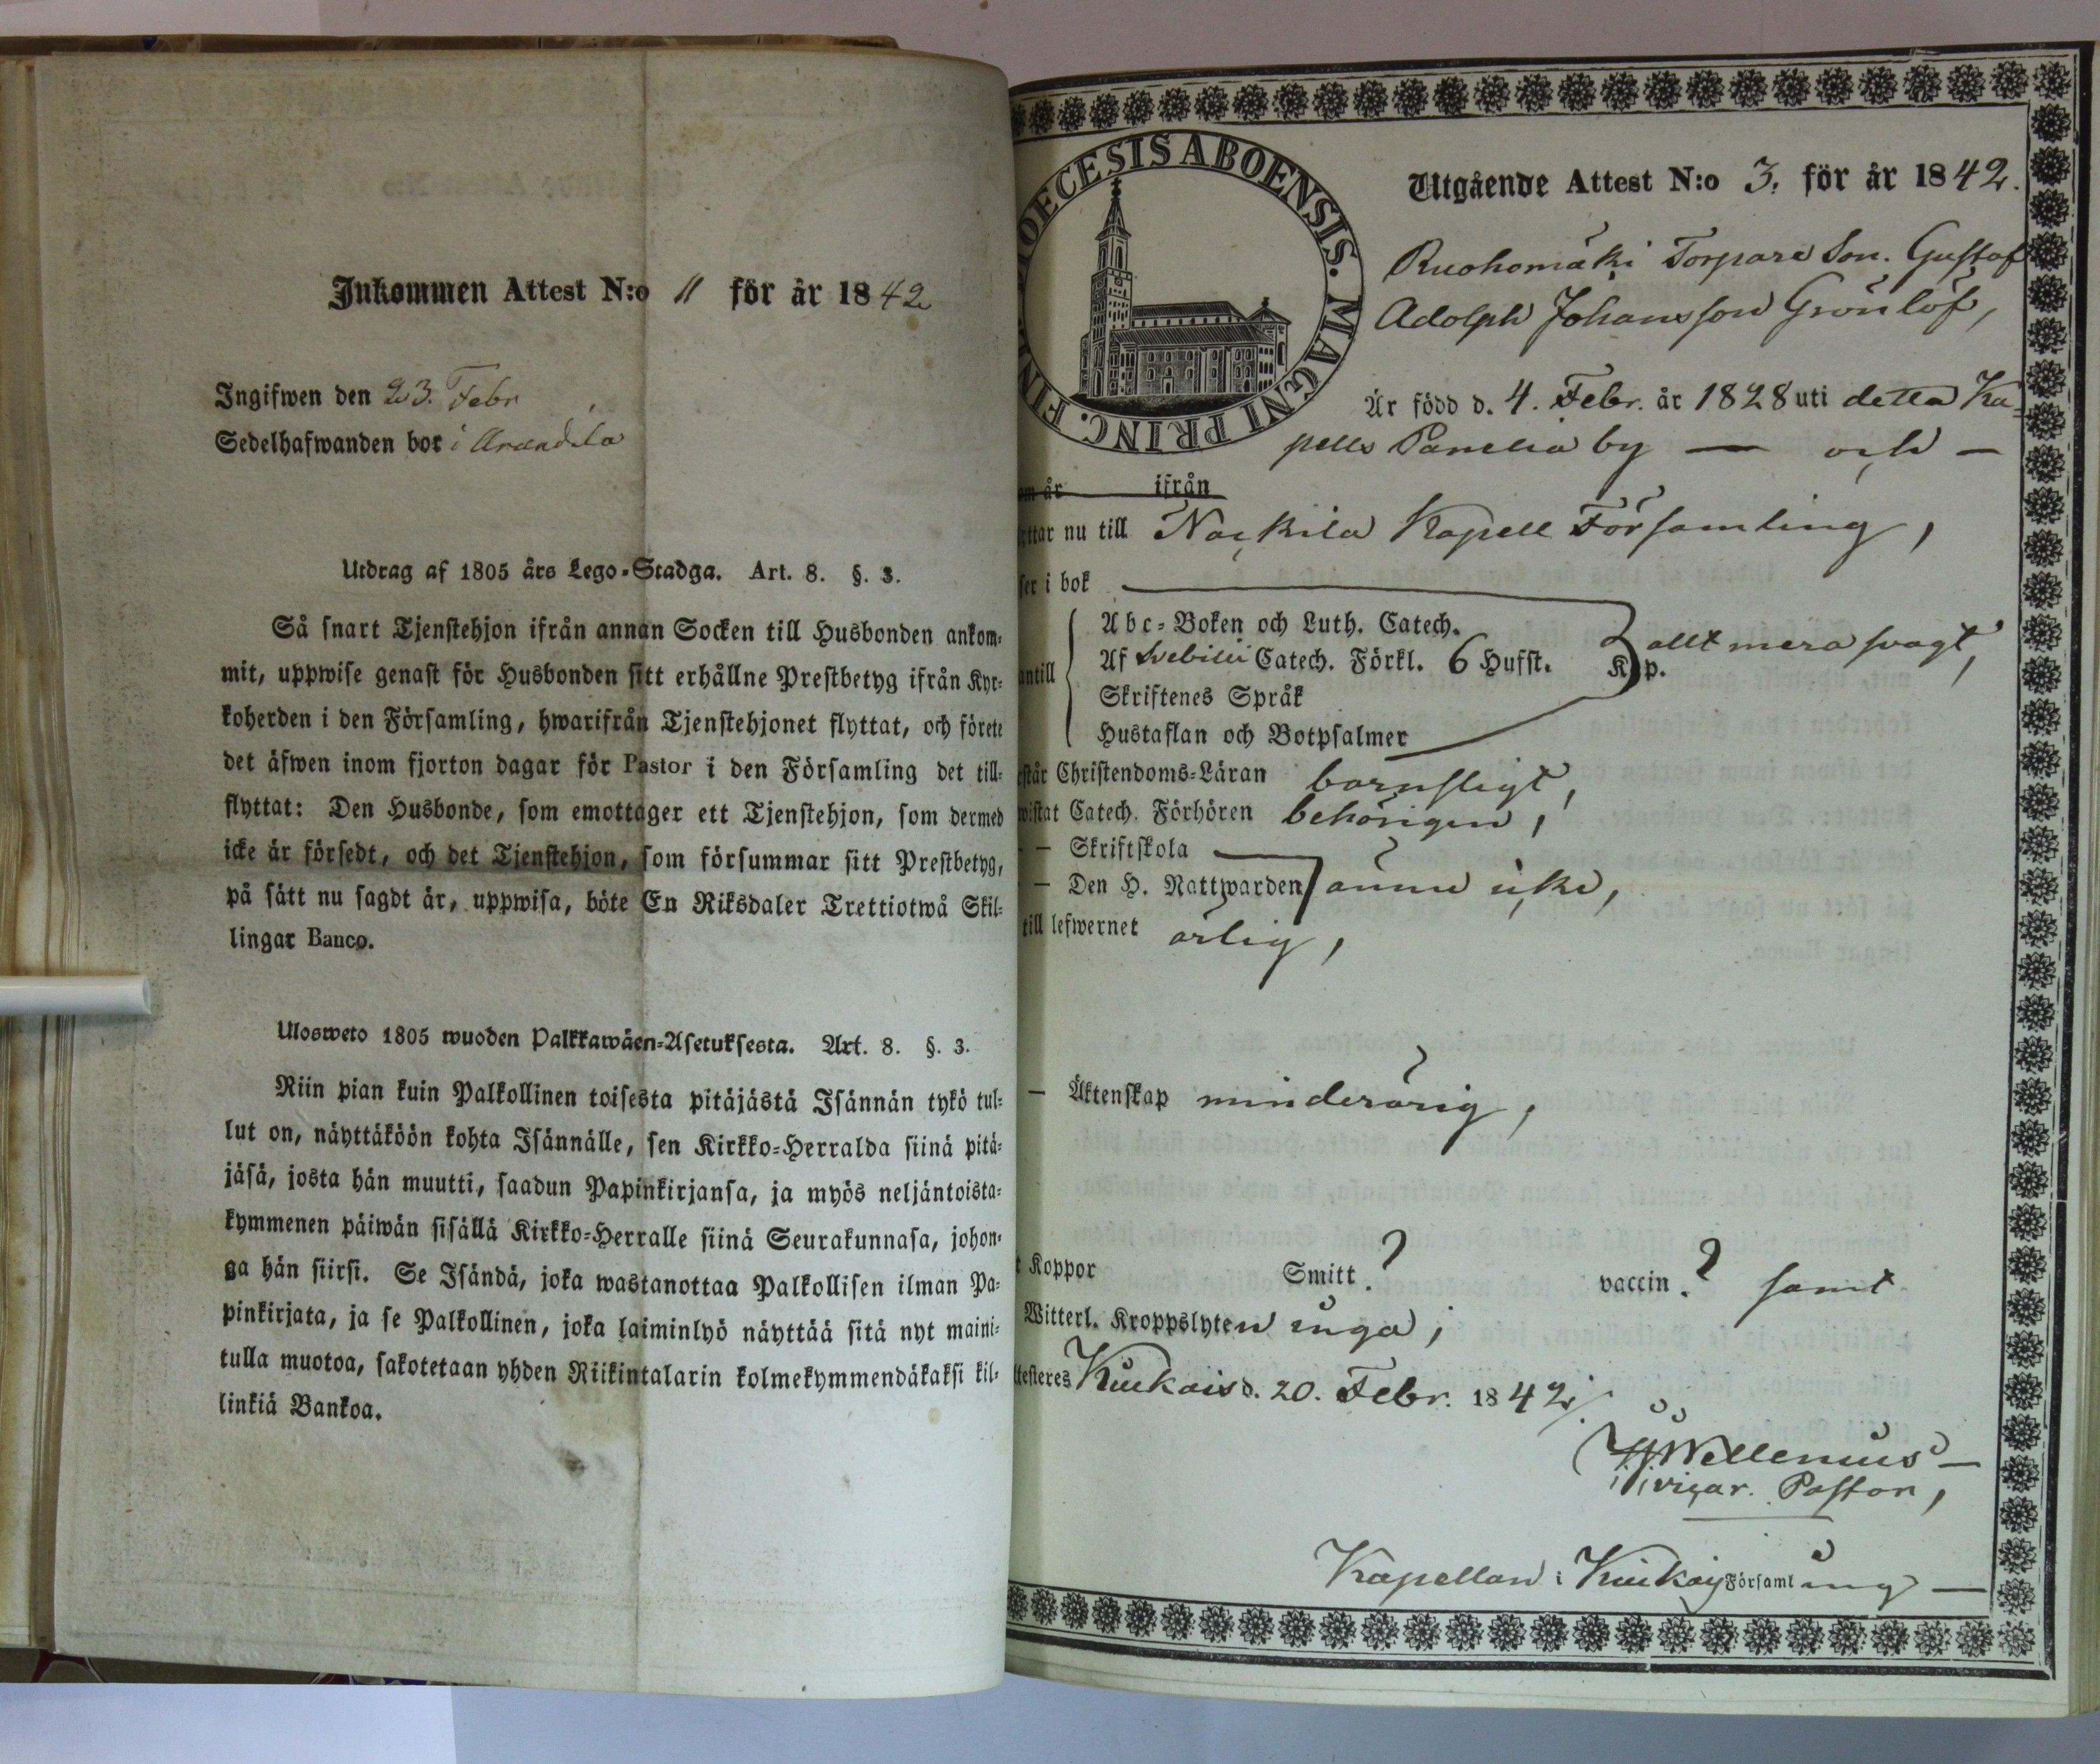 Inkommen Attest N:o 11 för år 1842
Ingifwen den 23. Febr
Sedelhafwanden bor i Arandila
Utdrag af 1805 års Lego-Stadga. Art. 8. §. 3.
Så snart Tjenstehjon ifrån annan Socken till Husbonden ankom-
mit, uppwise genast för Husbonden sitt erhållne Prestbetyg ifrån Kyr-
koherden i den Församling, hwarifrån Tjenstehjonet flyttat, och förete
det äfwen inom fjorton dagar för Pastor i den Församling det till-
flyttat: Den Husbonde, som emottager ett Tjenstehjon, som dermed
icke är försedt, och det Tjenstehjon, som försummar sitt Prestbetyg,
på sätt nu sagdt är, uppwisa, böte En Riksdaler Trettiotwå Skil-
lingar Banco.
Ulosweto 1805 wuoden Palkkawäen-Asetuksesta. Art. 8. §. 3.
Niin pian kuin Palkollinen toisesta pitäjästä Isännän tykö tul-
lut on, näyttäköön kohta Isännälle, sen Kirkko-Herralda siinä pitä-
jäsä, josta hän muutti, saadun Papinkirjansa, ja myös neljäntoista-
kymmenen päiwän sisällä Kirkko-Herralle siinä Seurakunnasa, johon-
ga hän siirsi. Se Isändä, joka wastanottaa Palkollisen ilman Pa-
pinkirjata, ja se Palkollinen, joka laiminlyö näyttää sitä nyt maini-
tulla muotoa, sakotetaan yhden Riikintalarin kolmekymmendäkaksi kil-
linkiä Bankoa.
DIOECESIS ABOENSIS. MAGNI PRINC. FIN
Utgående Attest N:o 3. för år 1842.
Ruohomäki Torpare Son. Gustaf
Adolph Johansson Grönlöf,
Är född d. 4. Febr. år 1828 uti detta Ka-
pells Panelia by — och —
om år ifrån
ttar nu till Nackila Kapell Församling,
ser i bok
Abc-Boken och Luth. Catech.
Af Svebilii Catech. Förkl. 6 Hufst. K p. allt mera svagt,
antill
Skriftenes Språk
Hustaflan och Botpsalmer
står Christendoms-Läran barnsligt,
wistat Catech. Förhören behörigen,
— Skriftskola
— Den H. Nattwarden ännu icke,
till lefwernet ärlig,
— Äktenskap minderårig,
t Koppor Smitt. ? vaccin. ? samt
Witterl. Kroppslyten inga;
ttesteres Kiukais d. 20. Febr. 1842
Wellenius
vicar. Pastor,
Kapellan i Kiukais Församling —